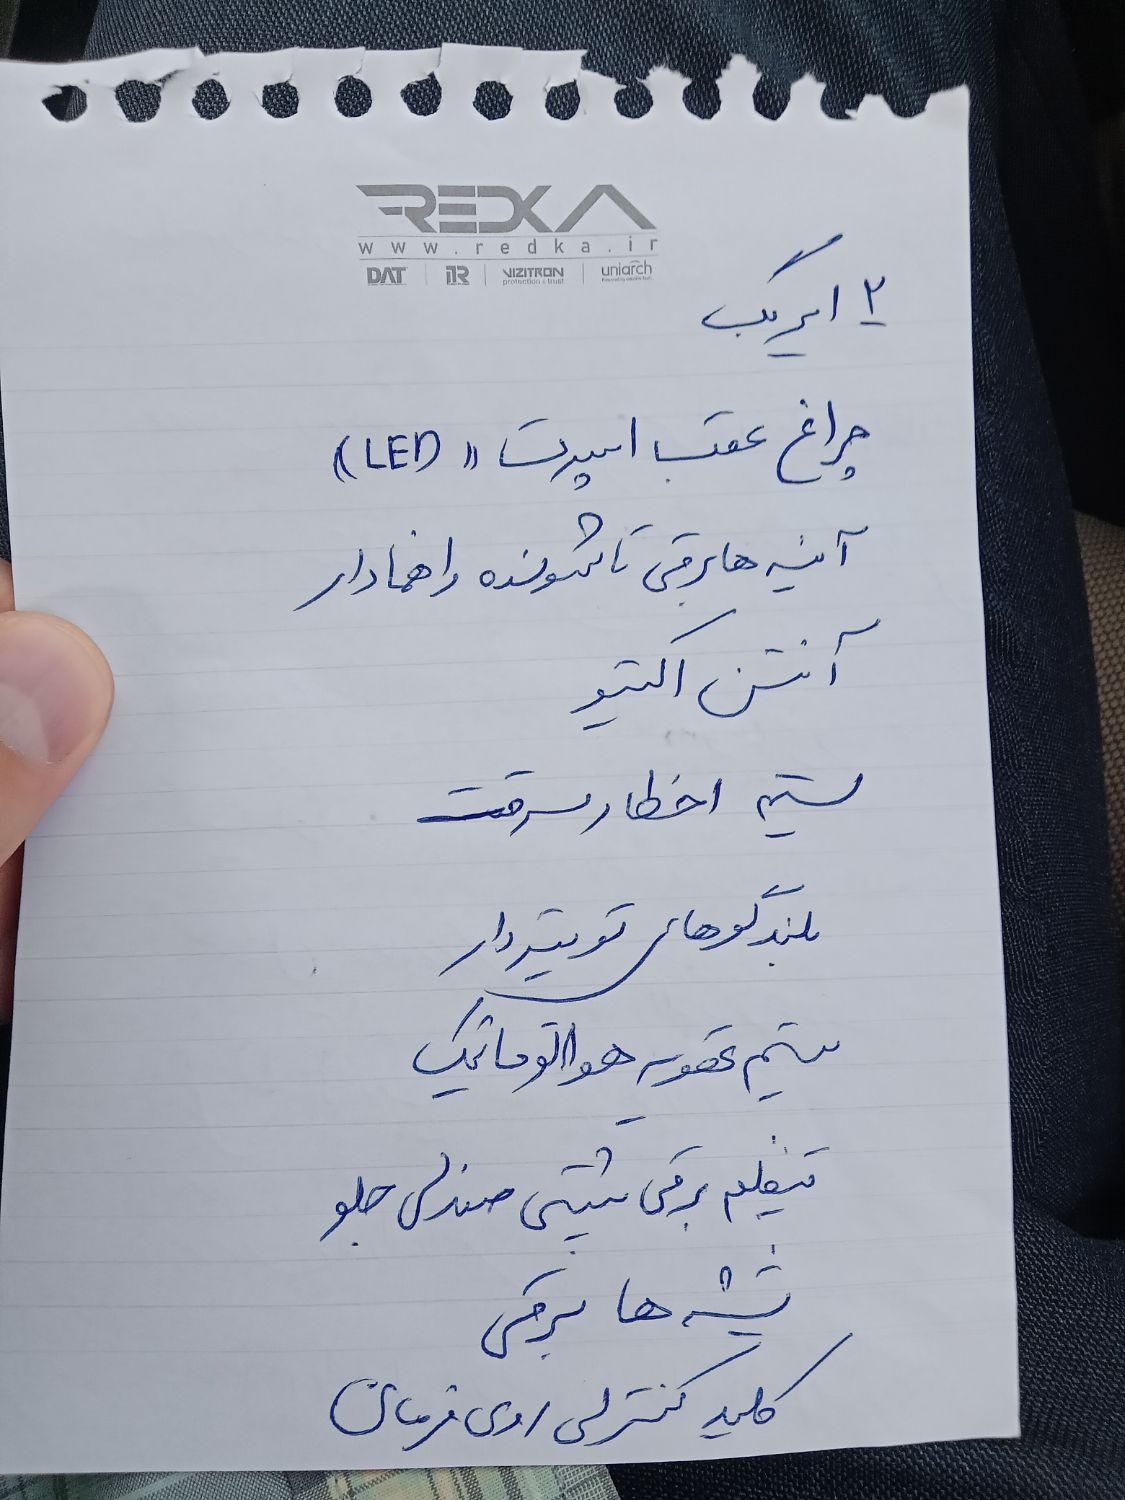 REDKA
www.redka.ir
DAT | iTR | VIZITRON protection & trust | uniarch
۲ ایربگ
چراغ عقب اسپرت «LED»
آئینه ها برقی تاشونده راهنمادار
آنتن اکتیو
سیستم اخطار سرقت
بلندگوهای تویتردار
سیستم تهویه هوا اتوماتیک
تنظیم برقی پشتی صندلی جلو
شیشه ها برقی
کلید کنترلی روی فرمان